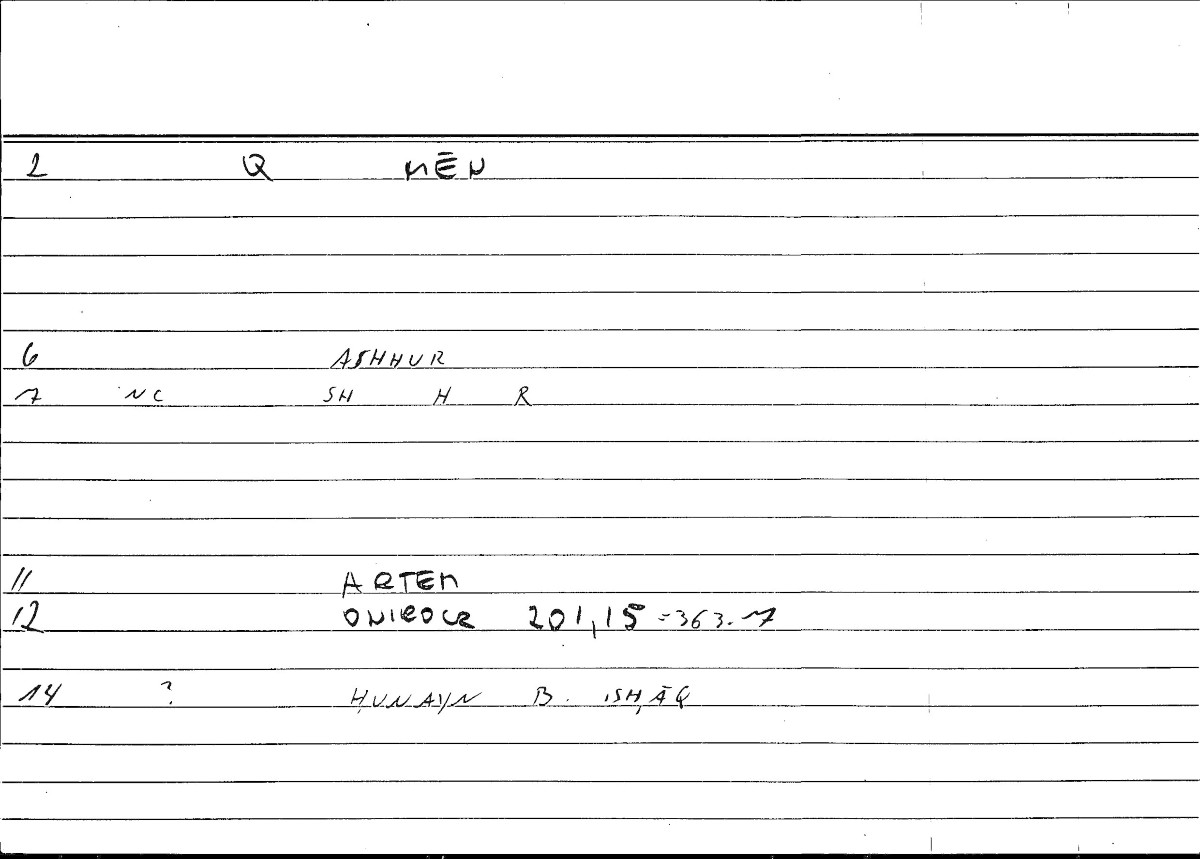 2 Q MĒN
6 ASHHUR
7 NC SH H R
11 ARTEM
12 ONIROCR 201,15 =363.7
14 ? ḤUNAYN B. ISḤĀQ